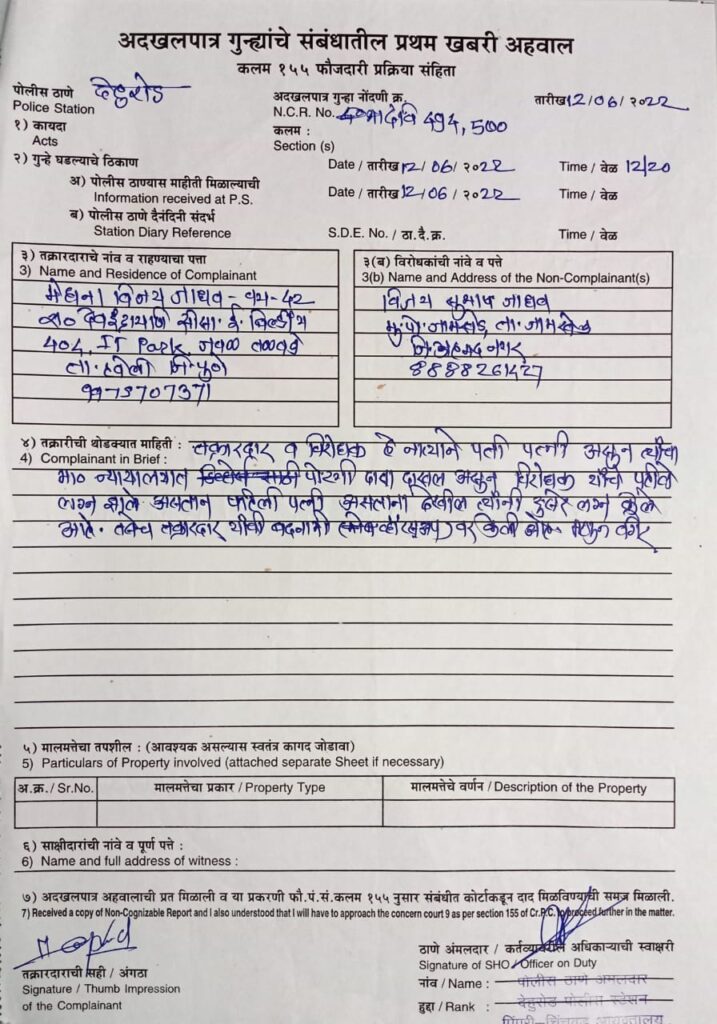 अदखलपात्र गुन्ह्यांचे संबंधातील प्रथम खबरी अहवाल
कलम १५५ फौजदारी प्रक्रिया संहिता
पोलीस ठाणे देहुरोड
Police Station
अदखलपात्र गुन्हा नोंदणी क्र. तारीख 12/06/2022
N.C.R. No. भादवि 494, 500
१) कायदा
Acts
कलम :
Section (s)
२) गुन्हे घडल्याचे ठिकाण Date / तारीख 12/06/2022 Time / वेळ 12/20
अ) पोलीस ठाण्यास माहीती मिळाल्याची
Information received at P.S. Date / तारीख 12/06/2022 Time / वेळ
ब) पोलीस ठाणे दैनंदिनी संदर्भ
Station Diary Reference S.D.E. No. / ठा.दै.क्र. Time / वेळ
३) तक्रारदाराचे नांव व राहण्याचा पत्ता
3) Name and Residence of Complainant
मेघना विजय जाधव - वय - 42
404, IT Park,
ता. हवेली जि. पुणे
३(ब) विरोधकांची नांवे व पत्ते
3(b) Name and Address of the Non-Complainant(s)
विजय सुभाष जाधव
मु.पो. जामखेड, ता. जामखेड
जि. अहमदनगर
8888261427
४) तक्रारीची थोडक्यात माहिती : तक्रारदार व विरोधक हे नात्याने पती पत्नी असुन त्यांचा
4) Complainant in Brief :
मा० न्यायालयात पोटगी दावा दाखल असुन विरोधक यांचे पहीले
लग्न झाले असताना पहिली पत्नी असताना देखील त्यांनी दुसरे लग्न केले
आहे. तसेच तक्रारदार यांची बदनामी वर केली
५) मालमत्तेचा तपशील : (आवश्यक असल्यास स्वतंत्र कागद जोडावा)
5) Particulars of Property involved (attached separate Sheet if necessary)
अ.क्र. / Sr.No. मालमत्तेचा प्रकार / Property Type मालमत्तेचे वर्णन / Description of the Property
६) साक्षीदारांची नांवे व पूर्ण पत्ते :
6) Name and full address of witness :
७) अदखलपात्र अहवालाची प्रत मिळाली व या प्रकरणी फौ.प्र.सं.कलम १५५ नुसार संबंधीत कोर्टाकडून दाद मिळविण्याची समज मिळाली.
7) Received a copy of Non-Cognizable Report and I also understood that I will have to approach the concern court 9 as per section 155 of Cr.P.C. to proceed further in the matter.
तक्रारदाराची सही / अंगठा
Signature / Thumb Impression
of the Complainant
ठाणे अंमलदार / कर्तव्यावरील अधिकाऱ्याची स्वाक्षरी
Signature of SHO / Officer on Duty
नांव / Name : पोलीस ठाणे अमलदार
हुद्दा / Rank : देहुरोड पोलीस स्टेशन
पिंपरी-चिंचवड आयुक्तालय